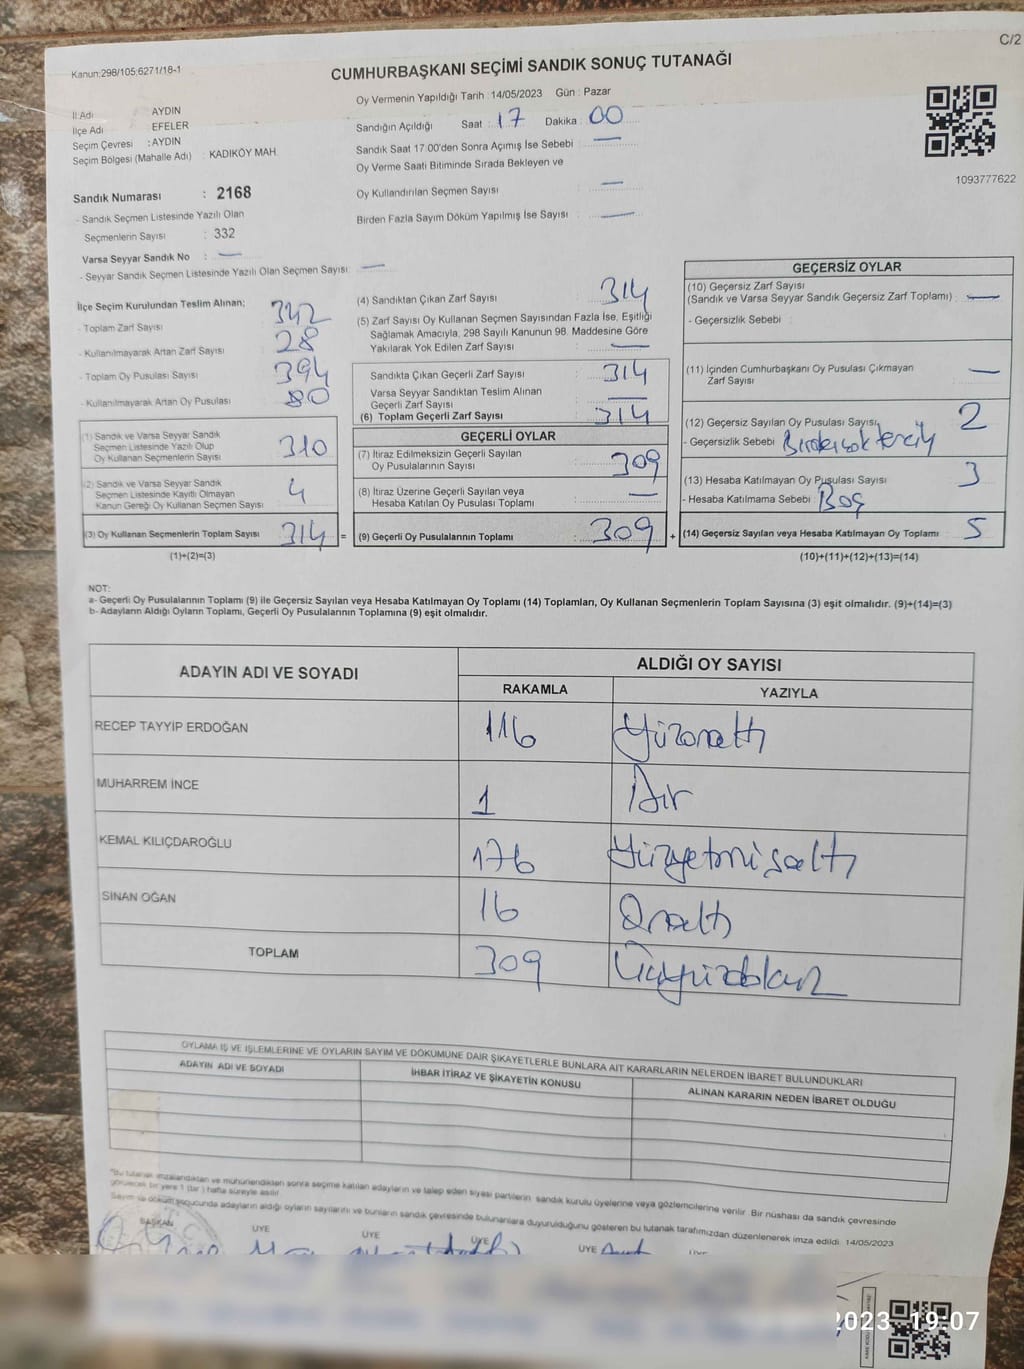 C/2
Kanun:298/105;6271/18-1
CUMHURBAŞKANI SEÇİMİ SANDIK SONUÇ TUTANAĞI
Oy Vermenin Yapıldığı Tarih :14/05/2023 Gün : Pazar
İl Adı AYDIN
İlçe Adı EFELER
Seçim Çevresi : AYDIN
Seçim Bölgesi (Mahalle Adı) : KADIKÖY MAH.
Sandık Numarası : 2168
- Sandık Seçmen Listesinde Yazılı Olan
Seçmenlerin Sayısı : 332
Varsa Seyyar Sandık No : —
- Seyyar Sandık Seçmen Listesinde Yazılı Olan Seçmen Sayısı : —
Sandığın Açıldığı Saat : 17 Dakika : 00
Sandık Saat 17.00'den Sonra Açılmış İse Sebebi : —
Oy Verme Saati Bitiminde Sırada Bekleyen ve
Oy Kullandırılan Seçmen Sayısı : —
Birden Fazla Sayım Döküm Yapılmış İse Sayısı : —
1093777622
İlçe Seçim Kurulundan Teslim Alınan;
- Toplam Zarf Sayısı 342
- Kullanılmayarak Artan Zarf Sayısı 28
- Toplam Oy Pusulası Sayısı 394
- Kullanılmayarak Artan Oy Pusulası 80
(1) Sandık ve Varsa Seyyar Sandık
Seçmen Listesinde Yazılı Olup
Oy Kullanan Seçmenlerin Sayısı 310
(2) Sandık ve Varsa Seyyar Sandık
Seçmen Listesinde Kayıtlı Olmayan
Kanun Gereği Oy Kullanan Seçmen Sayısı 4
(3) Oy Kullanan Seçmenlerin Toplam Sayısı 314 =
(1)+(2)=(3)
(4) Sandıktan Çıkan Zarf Sayısı : 314
(5) Zarf Sayısı Oy Kullanan Seçmen Sayısından Fazla İse, Eşitliği
Sağlamak Amacıyla, 298 Sayılı Kanunun 98. Maddesine Göre
Yakılarak Yok Edilen Zarf Sayısı : —
Sandıkta Çıkan Geçerli Zarf Sayısı : 314
Varsa Seyyar Sandıktan Teslim Alınan
Geçerli Zarf Sayısı : —
(6) Toplam Geçerli Zarf Sayısı : 314
GEÇERLİ OYLAR
(7) İtiraz Edilmeksizin Geçerli Sayılan
Oy Pusulalarının Sayısı : 309
(8) İtiraz Üzerine Geçerli Sayılan veya
Hesaba Katılan Oy Pusulası Toplamı : —
(9) Geçerli Oy Pusulalarının Toplamı : 309 +
GEÇERSİZ OYLAR
(10) Geçersiz Zarf Sayısı
(Sandık ve Varsa Seyyar Sandık Geçersiz Zarf Toplamı) : —
- Geçersizlik Sebebi :
(11) İçinden Cumhurbaşkanı Oy Pusulası Çıkmayan
Zarf Sayısı : —
(12) Geçersiz Sayılan Oy Pusulası Sayısı : 2
- Geçersizlik Sebebi : Birden çok tercih
(13) Hesaba Katılmayan Oy Pusulası Sayısı : 3
- Hesaba Katılmama Sebebi : Boş
(14) Geçersiz Sayılan veya Hesaba Katılmayan Oy Toplamı : 5
(10)+(11)+(12)+(13)=(14)
NOT:
a- Geçerli Oy Pusulalarının Toplamı (9) ile Geçersiz Sayılan veya Hesaba Katılmayan Oy Toplamı (14) Toplamları, Oy Kullanan Seçmenlerin Toplam Sayısına (3) eşit olmalıdır. (9)+(14)=(3)
b- Adayların Aldığı Oyların Toplamı, Geçerli Oy Pusulalarının Toplamına (9) eşit olmalıdır.
ADAYIN ADI VE SOYADI ALDIĞI OY SAYISI
RAKAMLA YAZIYLA
RECEP TAYYİP ERDOĞAN 116 Yüzonaltı
MUHARREM İNCE 1 Bir
KEMAL KILIÇDAROĞLU 176 Yüzyetmişaltı
SİNAN OĞAN 16 Onaltı
TOPLAM 309 Üçyüzdokuz
OYLAMA İŞ VE İŞLEMLERİNE VE OYLARIN SAYIM VE DÖKÜMÜNE DAİR ŞİKAYETLERLE BUNLARA AİT KARARLARIN NELERDEN İBARET BULUNDUKLARI
ADAYIN ADI VE SOYADI İHBAR İTİRAZ VE ŞİKAYETİN KONUSU ALINAN KARARIN NEDEN İBARET OLDUĞU
*Bu tutanak imzalandıktan ve mühürlendikten sonra seçime katılan adayların ve talep eden siyasi partilerin sandık kurulu üyelerine veya gözlemcilerine verilir. Bir nüshası da sandık çevresinde
görülecek bir yere 1 (bir) hafta süreyle asılır.
Sayım ve döküm sonucunda adayların aldığı oyların sayılarını ve bunların sandık çevresinde bulunanlara duyurulduğunu gösteren bu tutanak tarafımızdan düzenlenerek imza edildi. 14/05/2023
BAŞKAN ÜYE ÜYE ÜYE ÜYE
2023 19:07